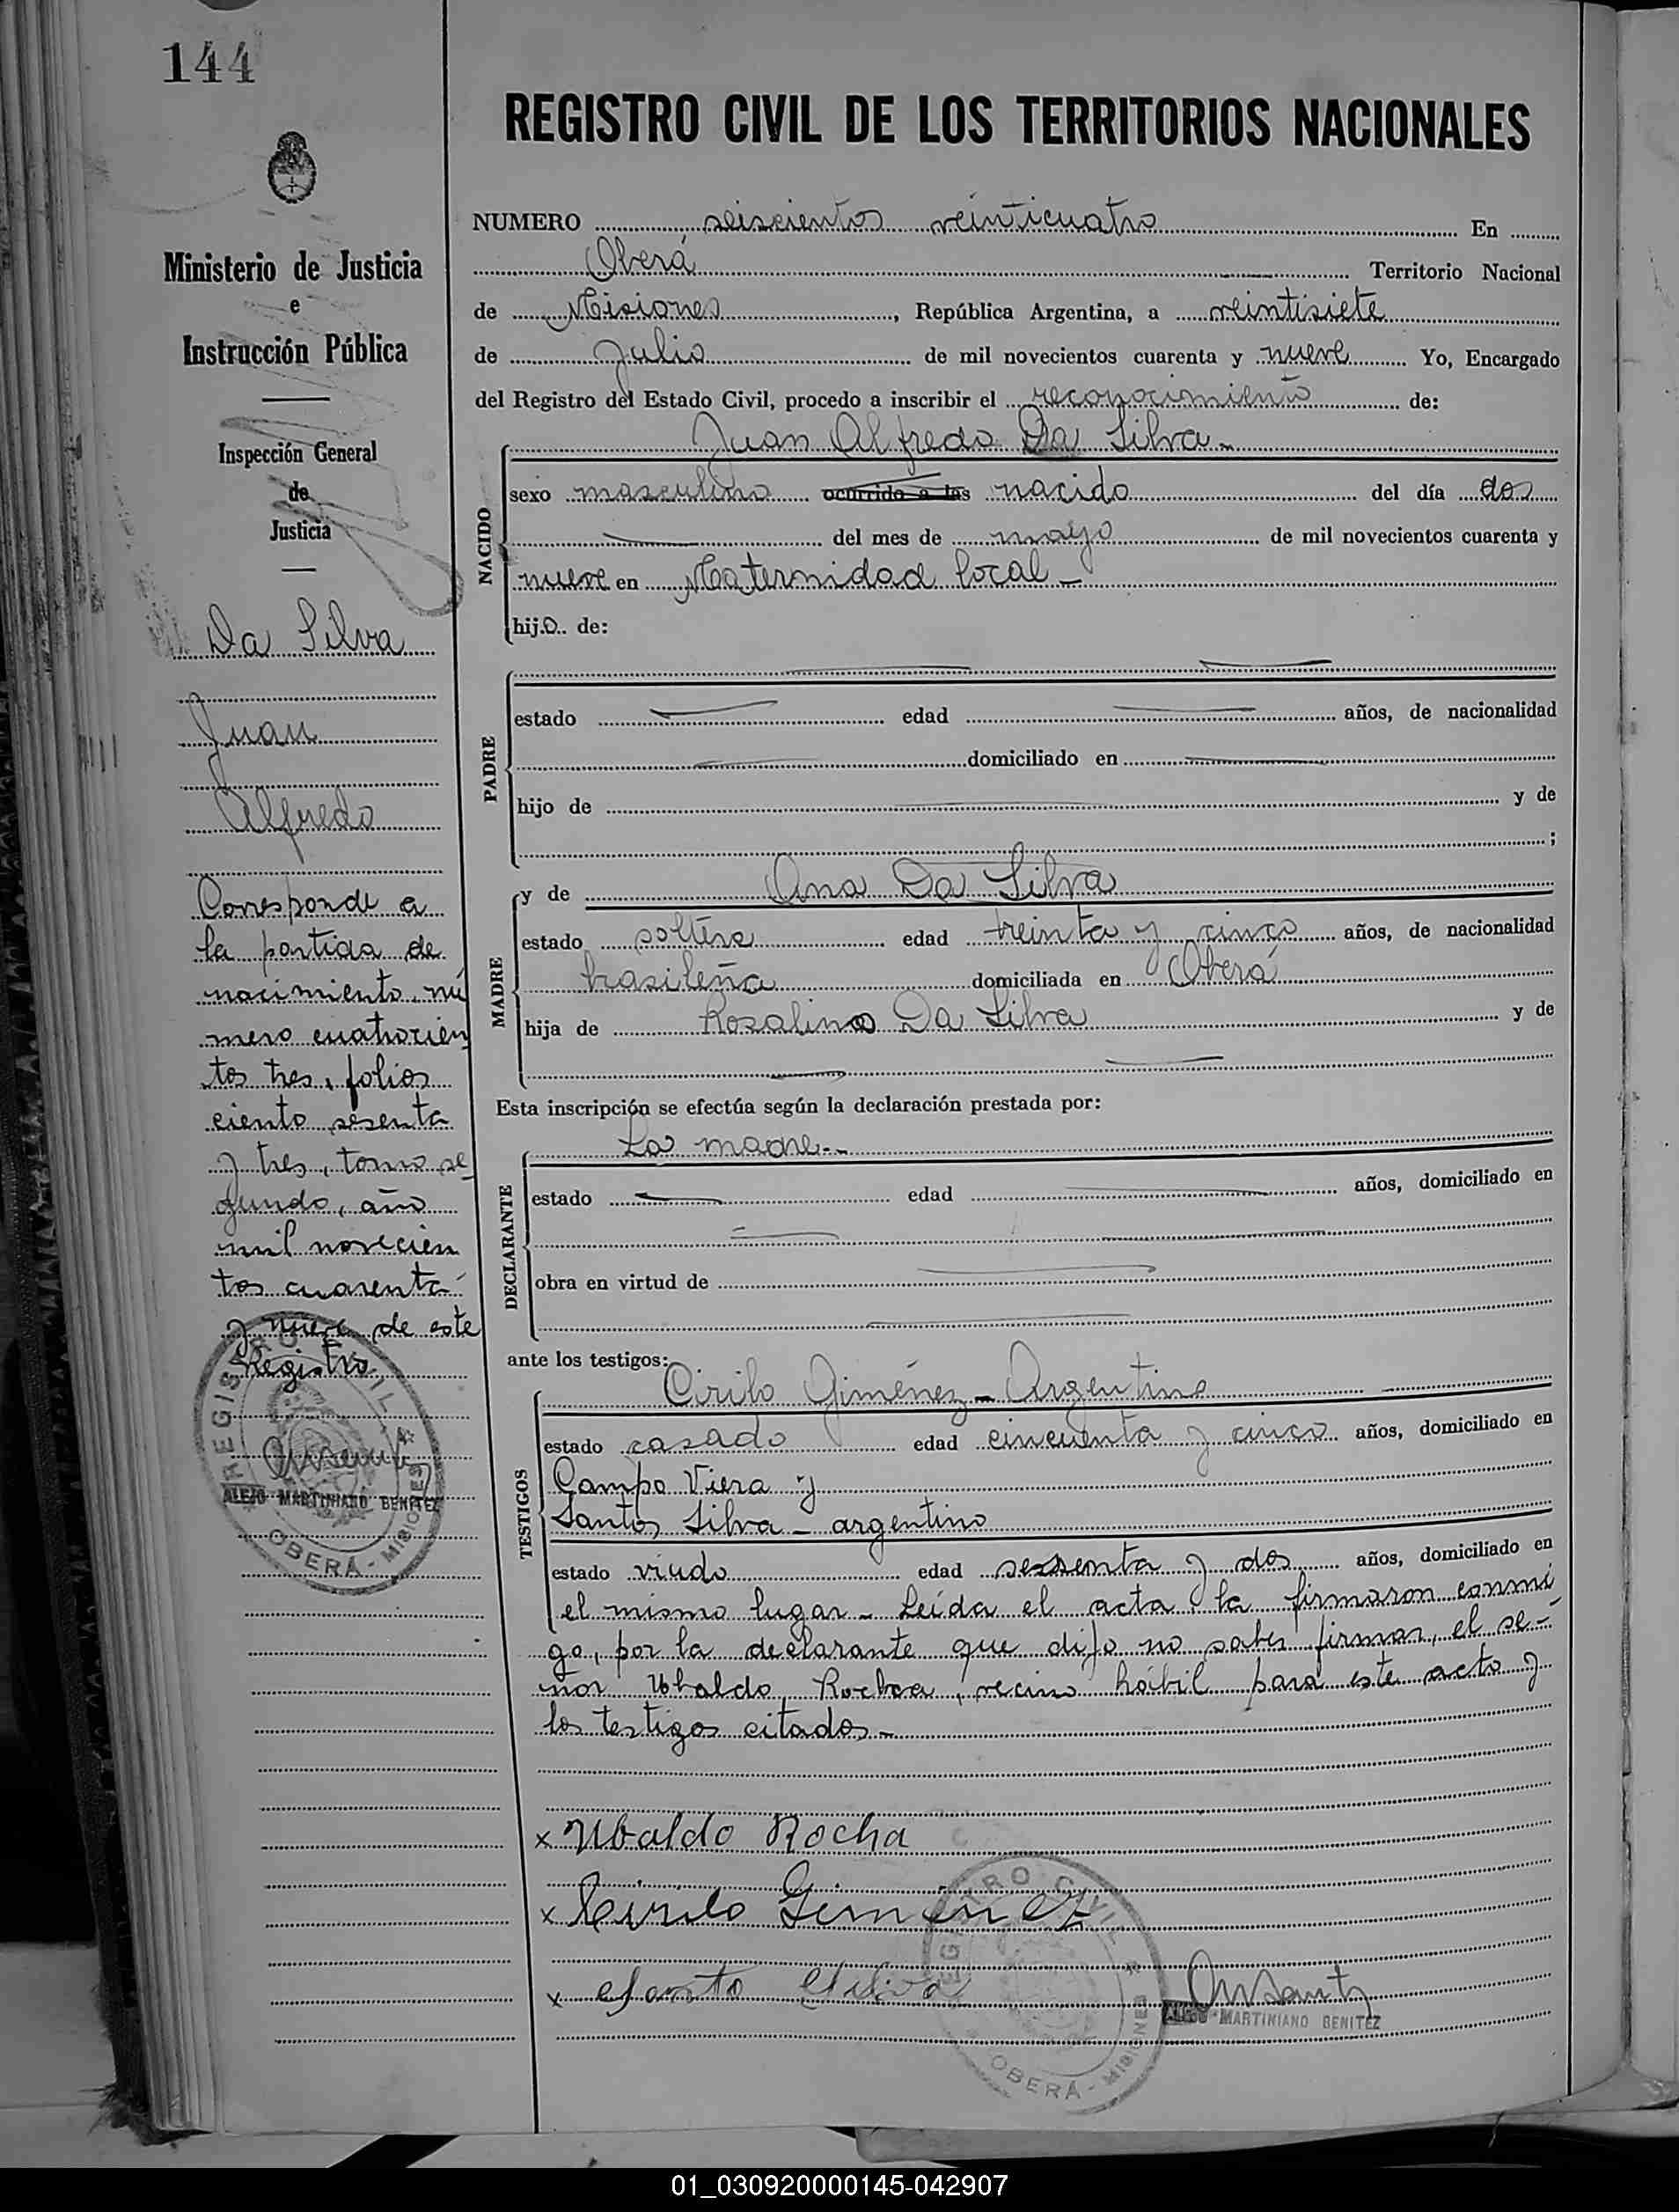 144
REGISTRO CIVIL DE LOS TERRITORIOS NACIONALES
Ministerio de Justicia
e
Instrucción Pública
Inspección General
de
Justicia
Da Silva
Juan
Alfredo
Corresponde a
la partida de
nacimiento nú
mero cuatrocien
tos tres, folios
ciento sesenta
y tres, tomo se
gundo, año
mil novecien
tos cuarenta
y nueve de este
Registro
REGISTRO CIVIL
OBERÁ - MISIONES
ALEJO MARTINIANO BENITEZ
NUMERO seiscientos veinticuatro En
Oberá Territorio Nacional
de Misiones, República Argentina, a veintisiete
de Julio de mil novecientos cuarenta y nueve Yo, Encargado
del Registro del Estado Civil, procedo a inscribir el reconocimiento de:
Juan Alfredo Da Silva-
NACIDO
sexo masculino ocurrido a las nacido del día dos
del mes de mayo de mil novecientos cuarenta y
nueve en Maternidad local-
hijo de:
PADRE
estado edad años, de nacionalidad
domiciliado en
hijo de y de
;
MADRE
y de Ana Da Silva
estado soltera edad treinta y cinco años, de nacionalidad
brasileña domiciliada en Oberá
hija de Rosalino Da Silva y de
Esta inscripción se efectúa según la declaración prestada por:
La madre.-
DECLARANTE
estado edad años, domiciliado en
obra en virtud de
ante los testigos:
TESTIGOS
Cirilo Giménez - Argentino
estado casado edad cincuenta y cinco años, domiciliado en
Campo Viera y
Santos Silva - argentino
estado viudo edad sesenta y dos años, domiciliado en
el mismo lugar - Leída el acta, la firmaron conmi
go, por la declarante que dijo no saber firmar, el se-
ñor Ubaldo Rocha, vecino hábil para este acto y
los testigos citados-
x Ubaldo Rocha
x Cirilo Gimenez
x Santo Silva
REGISTRO CIVIL
OBERÁ - MISIONES
ALEJO MARTINIANO BENITEZ
01_030920000145-042907